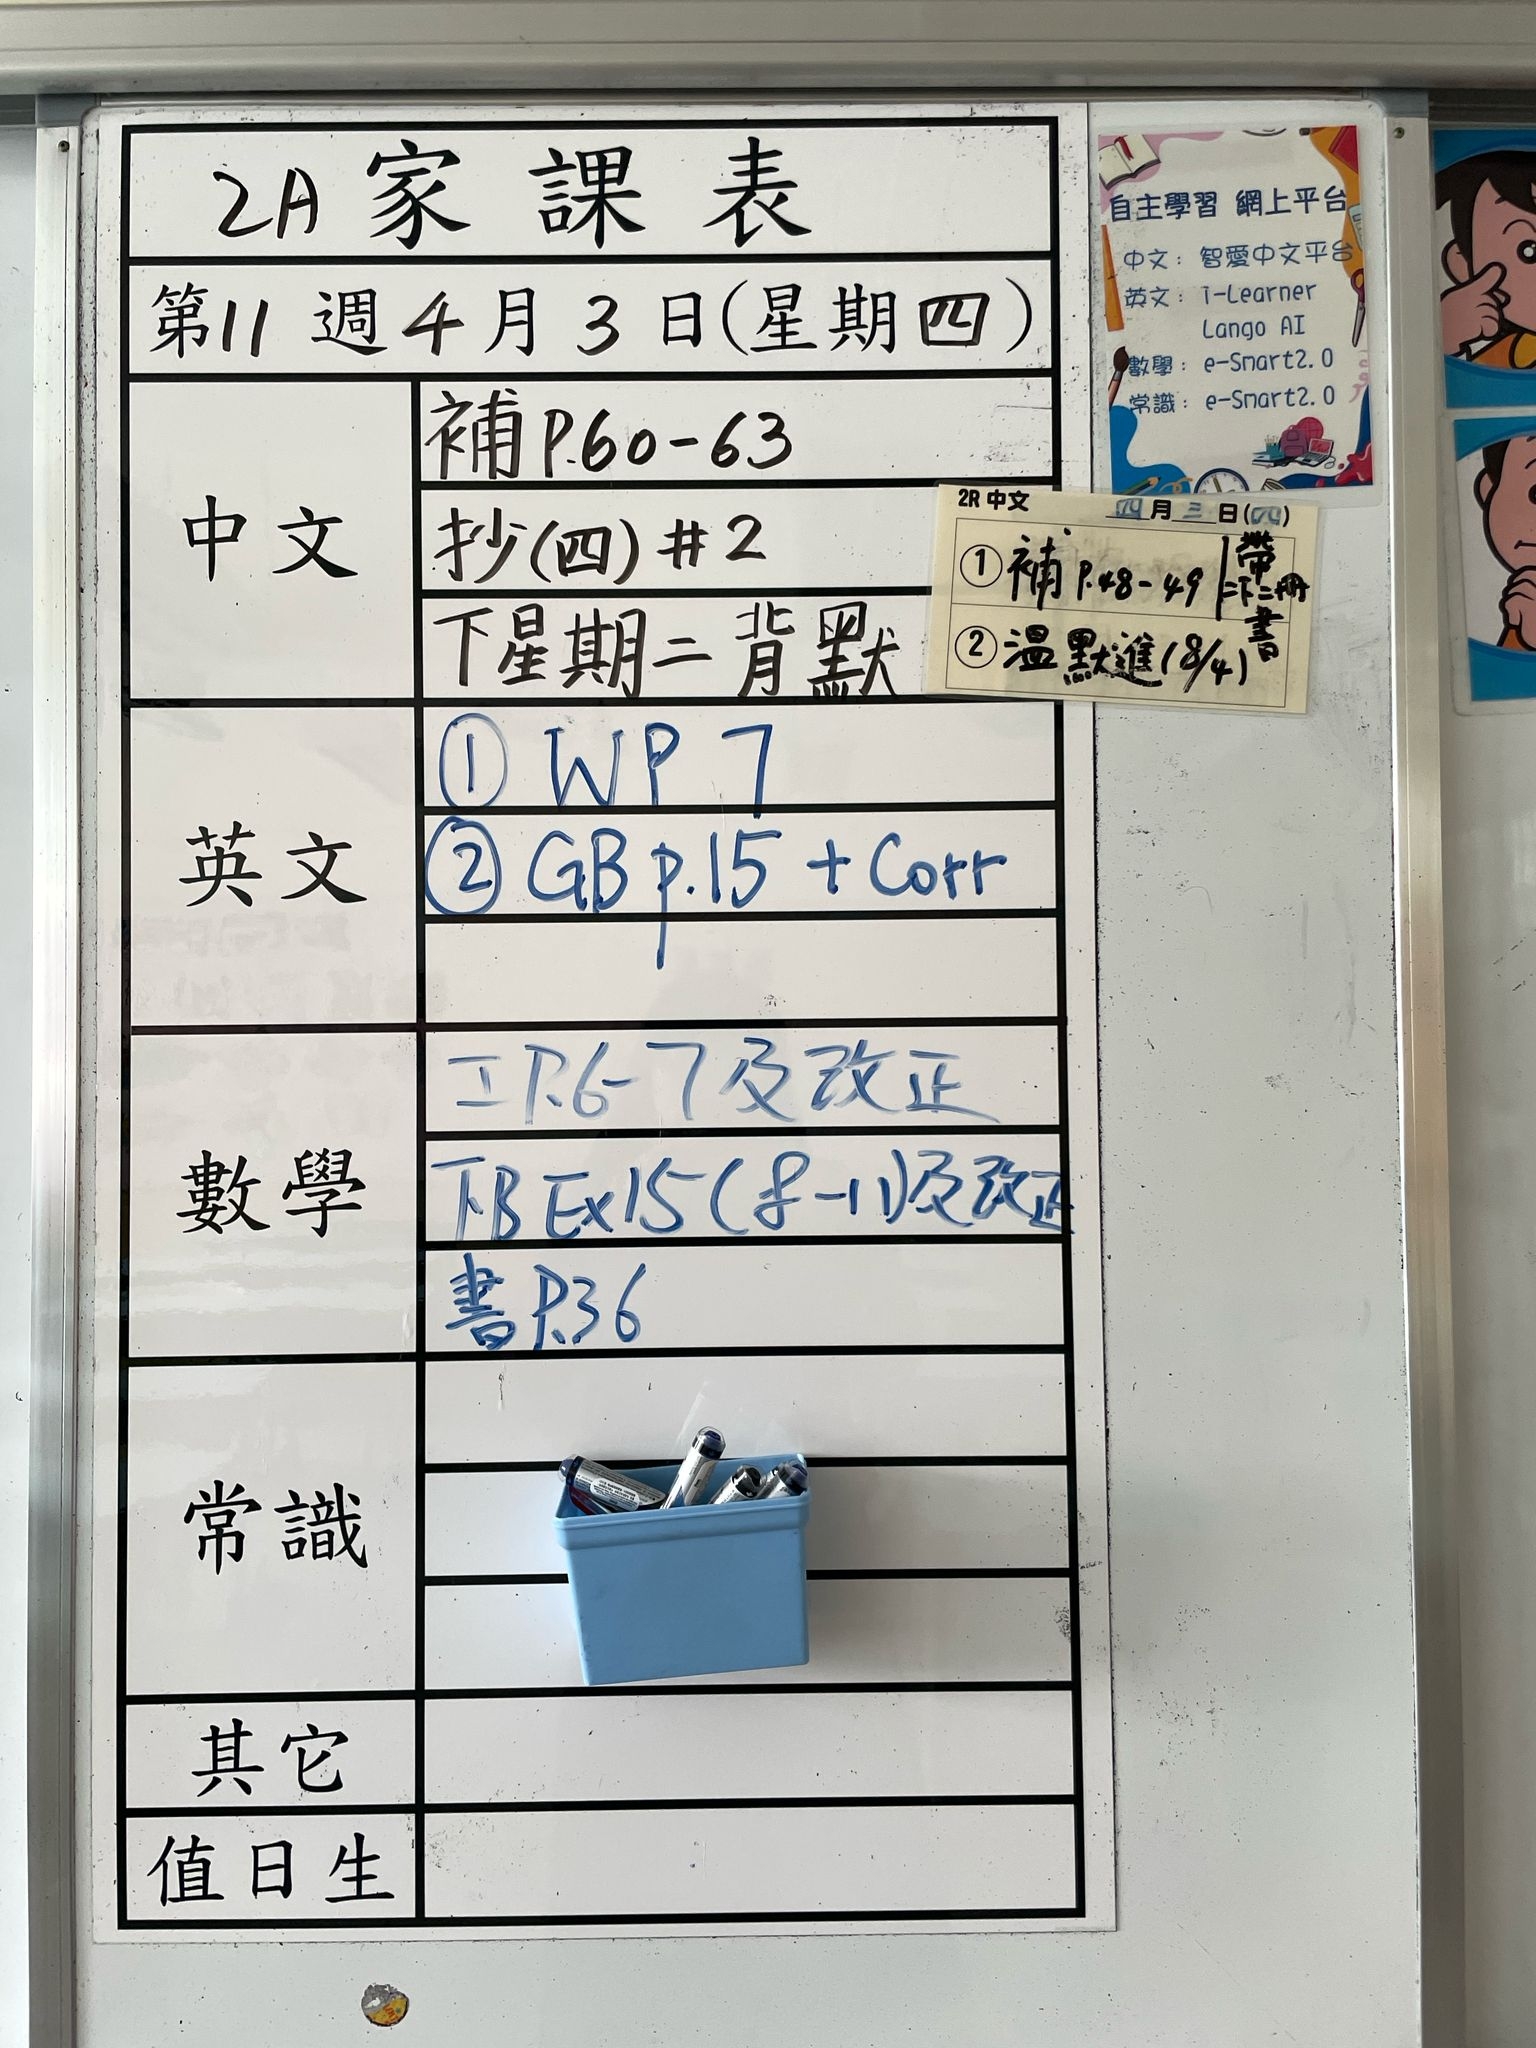 2A 家課表
第11週4月3日(星期四)
中文
補P.60-63
抄(四)#2
下星期二背默
英文
① WP 7
② GB p.15 + Corr
數學
工P.6-7及改正
TB Ex15(8-11)及改正
書P.36
常識
其它
值日生
自主學習 網上平台
中文：智愛中文平台
英文：i-Learner
Lango AI
數學：e-Smart2.0
常識：e-Smart2.0
2R 中文 四月三日(四)
① 補 P.48-49 帶二下二冊書
② 溫默進(8/4)